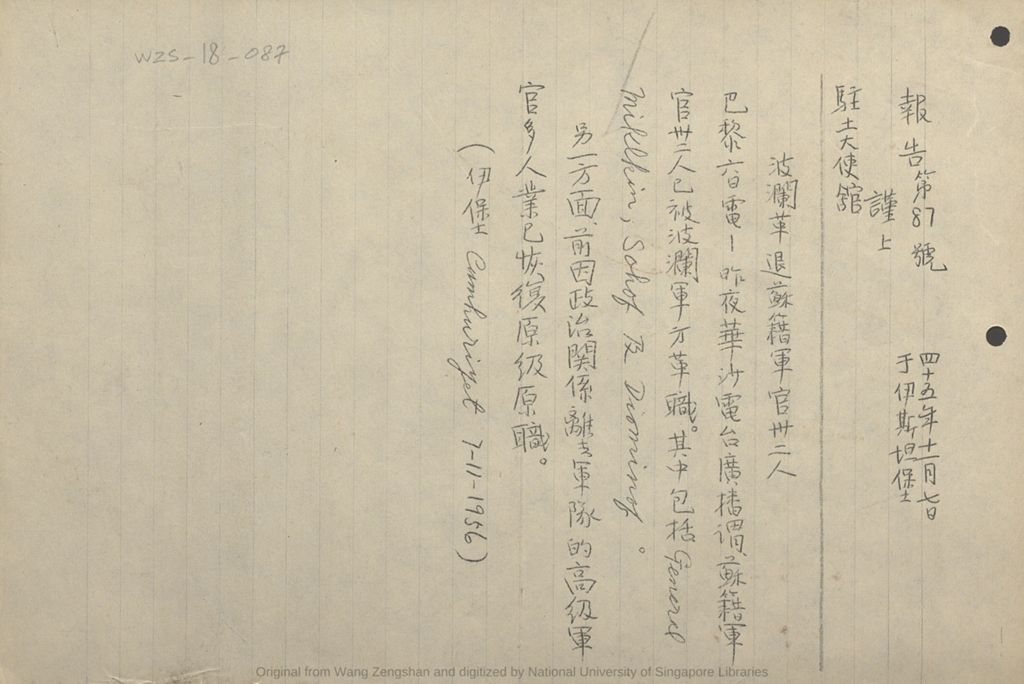 WZS-18-087
報告第87號
四十五年十一月七日
于伊斯坦保士
謹上
駐土大使舘
波瀾革退蘇籍軍官卅二人
巴黎六日電—昨夜華沙電台廣播謂,蘇籍軍
官卅二人已被波瀾軍方革職。其中包括General
Miklhin, Sohof 及 Diominof。
另一方面,前因政治關係離去軍隊的高級軍
官多人業已恢復原級原職。
(伊保士 Cumhuriyet 7-11-1956)
Original from Wang Zengshan and digitized by National University of Singapore Libraries